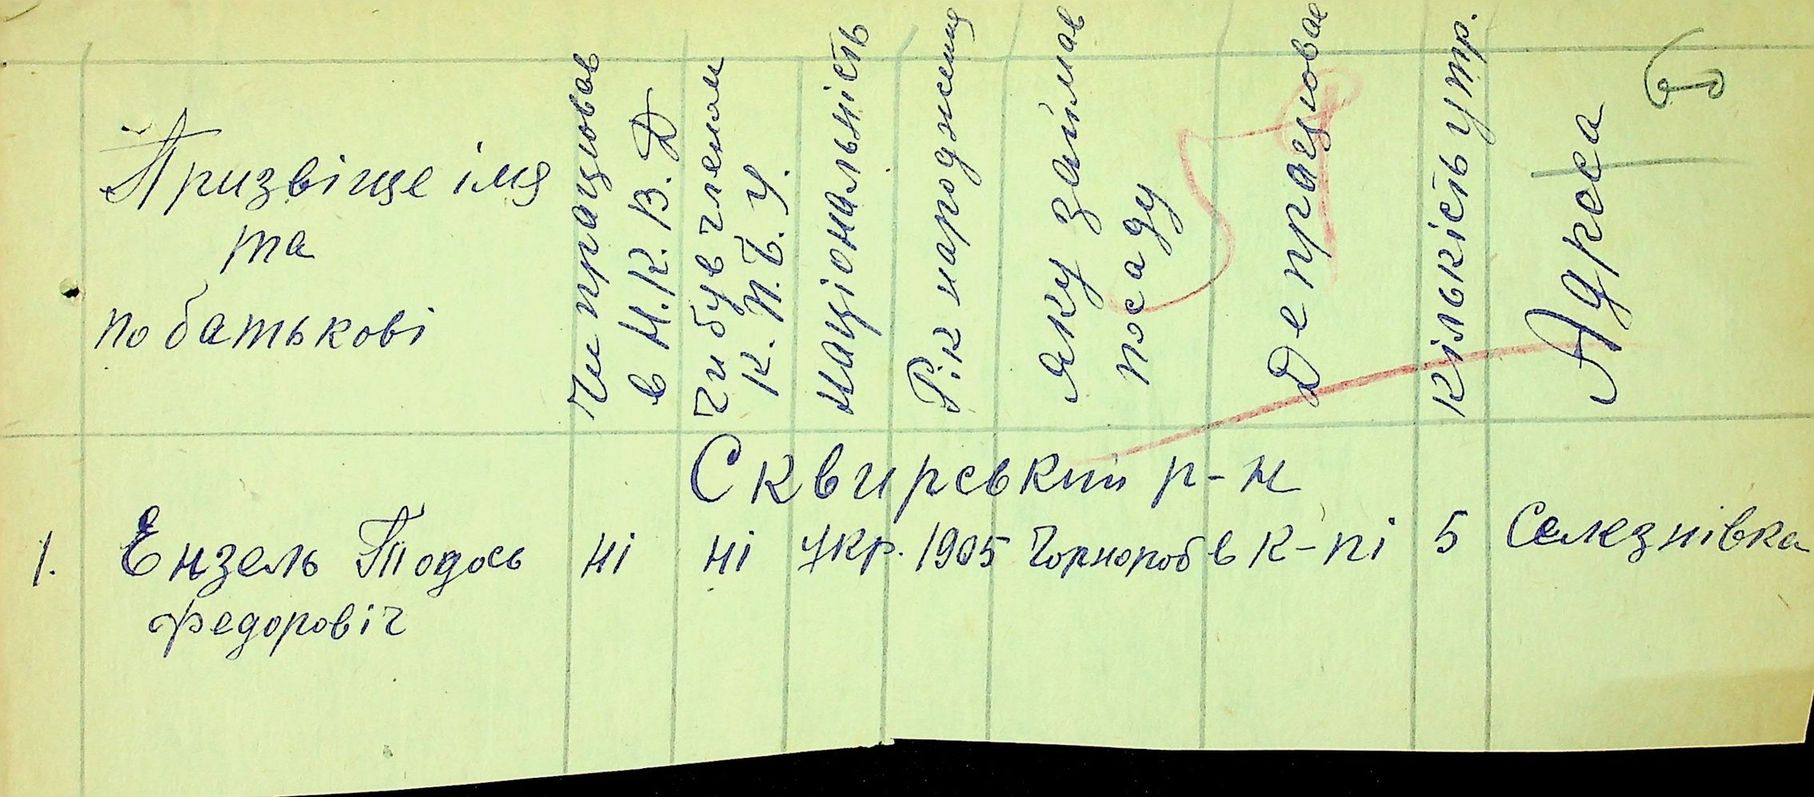 Призвіще імя
та
по батькові
Чи працював
в Н.К.В.Д
Чи був членом
К.П.б.У.
Національність
Рік народження
Яку займав
посаду
Де працював
Кількість утр.
Адреса
Сквирський р-н
1. Ензель Тодось ні ні Укр. 1905 Чорнороб в к-пі 5 Селезнівка
Федоровіч